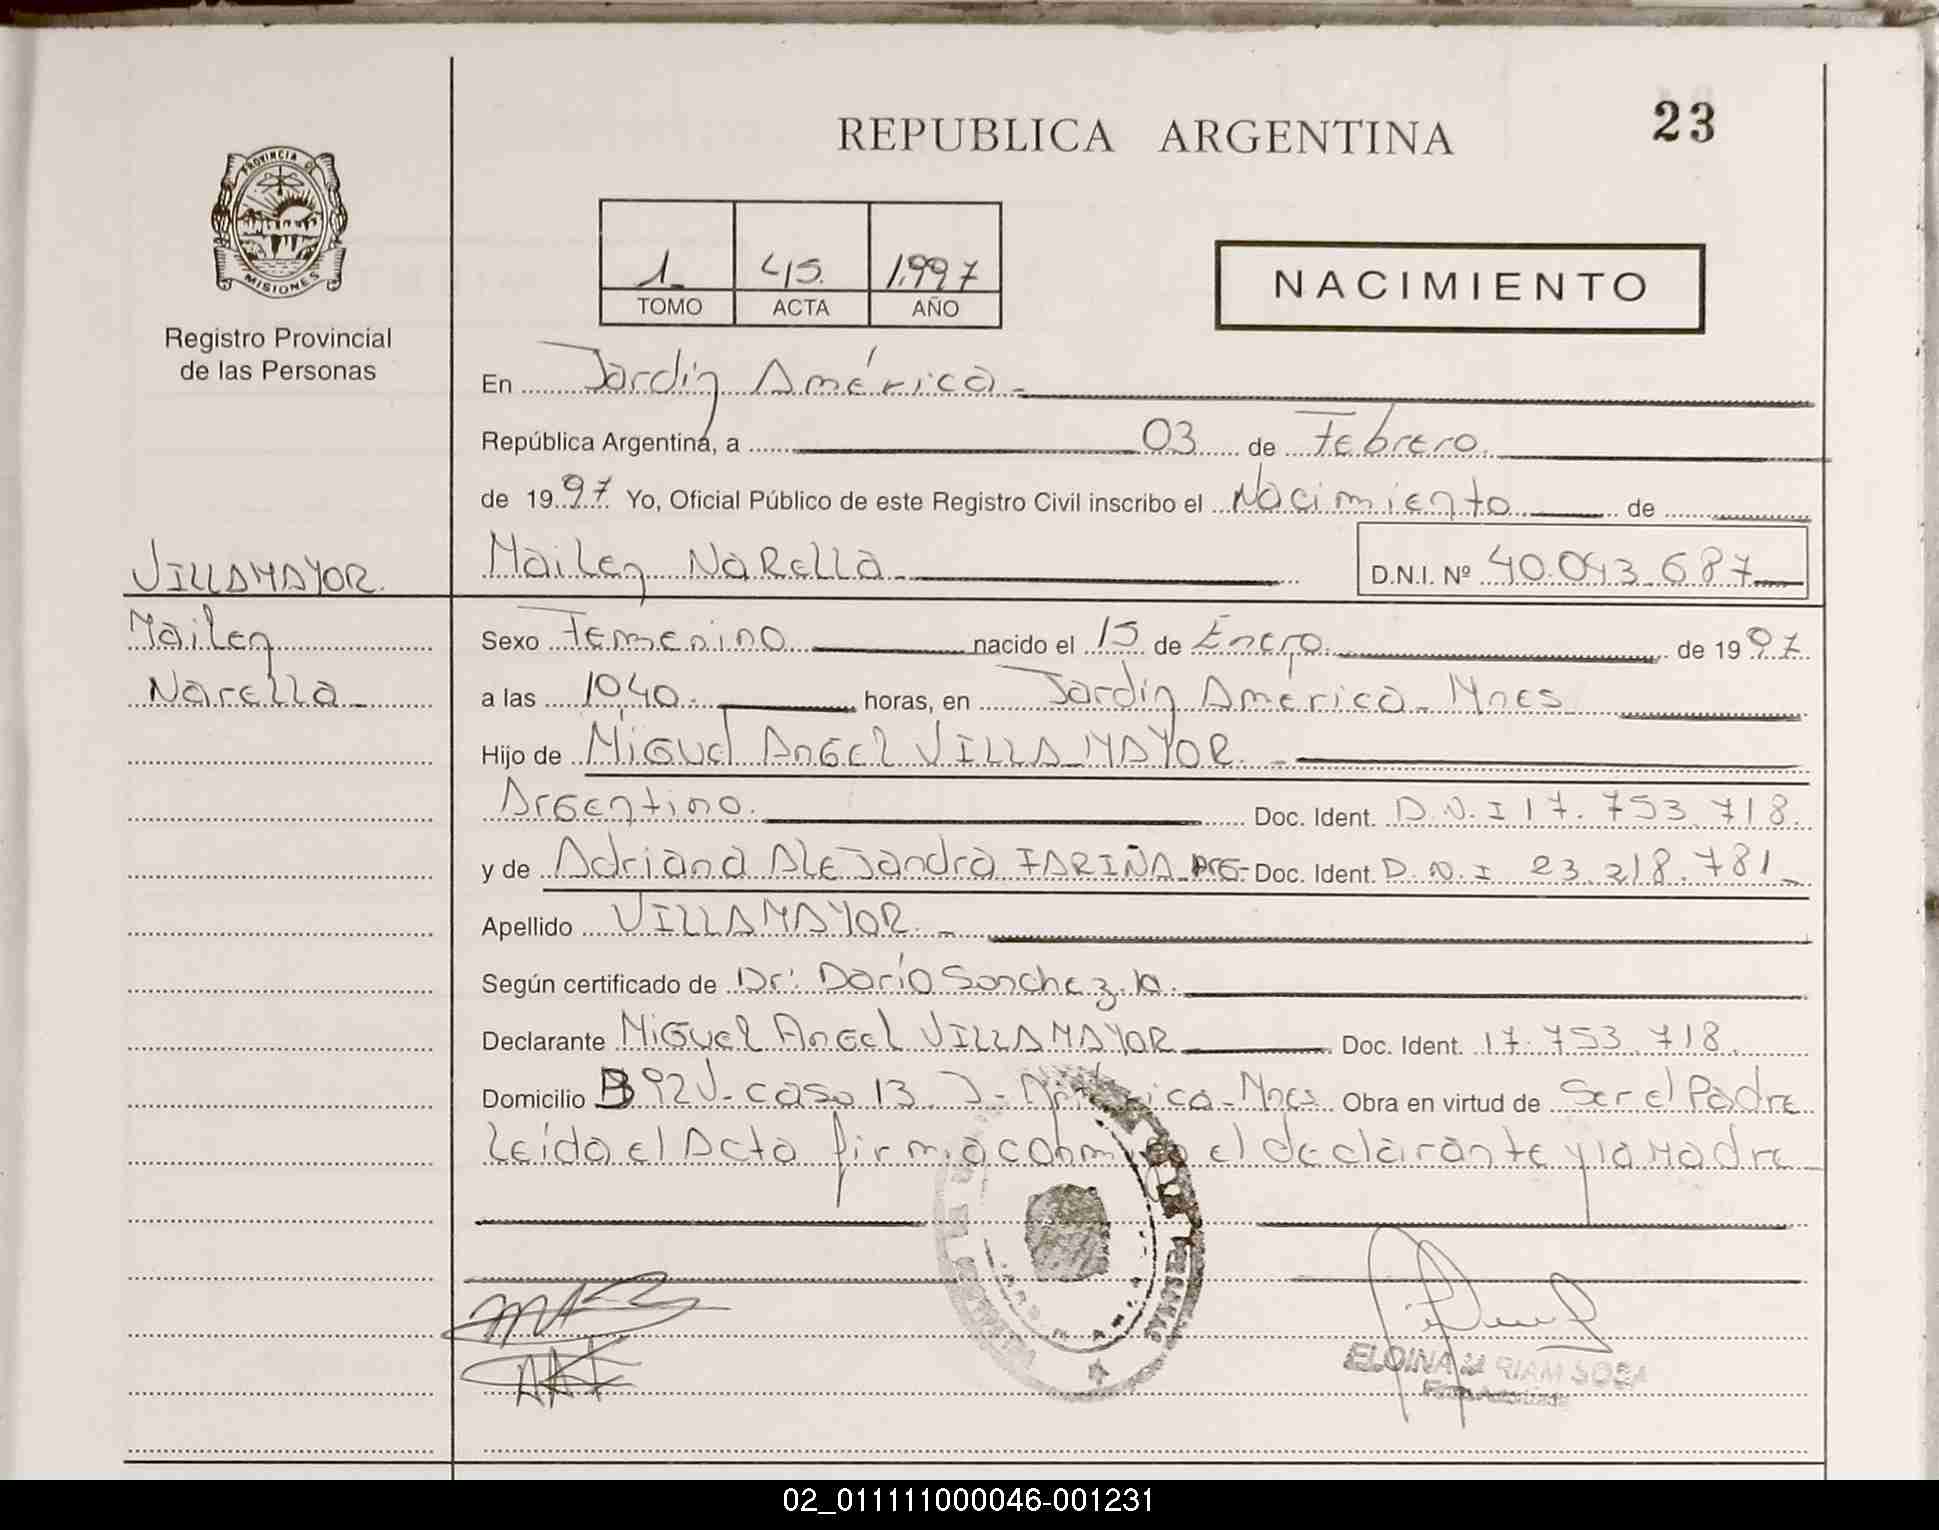 23
REPUBLICA ARGENTINA
PROVINCIA DE
MISIONES
1 45. 1.997
TOMO ACTA AÑO
NACIMIENTO
Registro Provincial
de las Personas
En Jardin América
República Argentina, a 03 de Febrero
de 1997 Yo, Oficial Público de este Registro Civil inscribo el Nacimiento de
VILLAMAYOR. Mailen NaRella D.N.I. Nº 40.043.687
Mailen Sexo Femenino nacido el 15 de Enero de 1997
Narella a las 10,40. horas, en Jardin América Mnes
Hijo de Miguel Angel VILLAMAYOR
Argentino. Doc. Ident. D.N.I 17.753.718.
y de Adriana Alejandra FARIÑA ARG- Doc. Ident. D.N.I 23.218.781
Apellido VILLAMAYOR
Según certificado de Dr: Darío Sanchez
Declarante Miguel Angel VILLAMAYOR Doc. Ident. 17.753.718.
Domicilio B 92 V. casa 13 J- América-Mnes Obra en virtud de Ser el Padre
Leída el Acta firma conmigo el declarante y la Madre
ELOINA MIRIAM SOSA
02_011111000046-001231